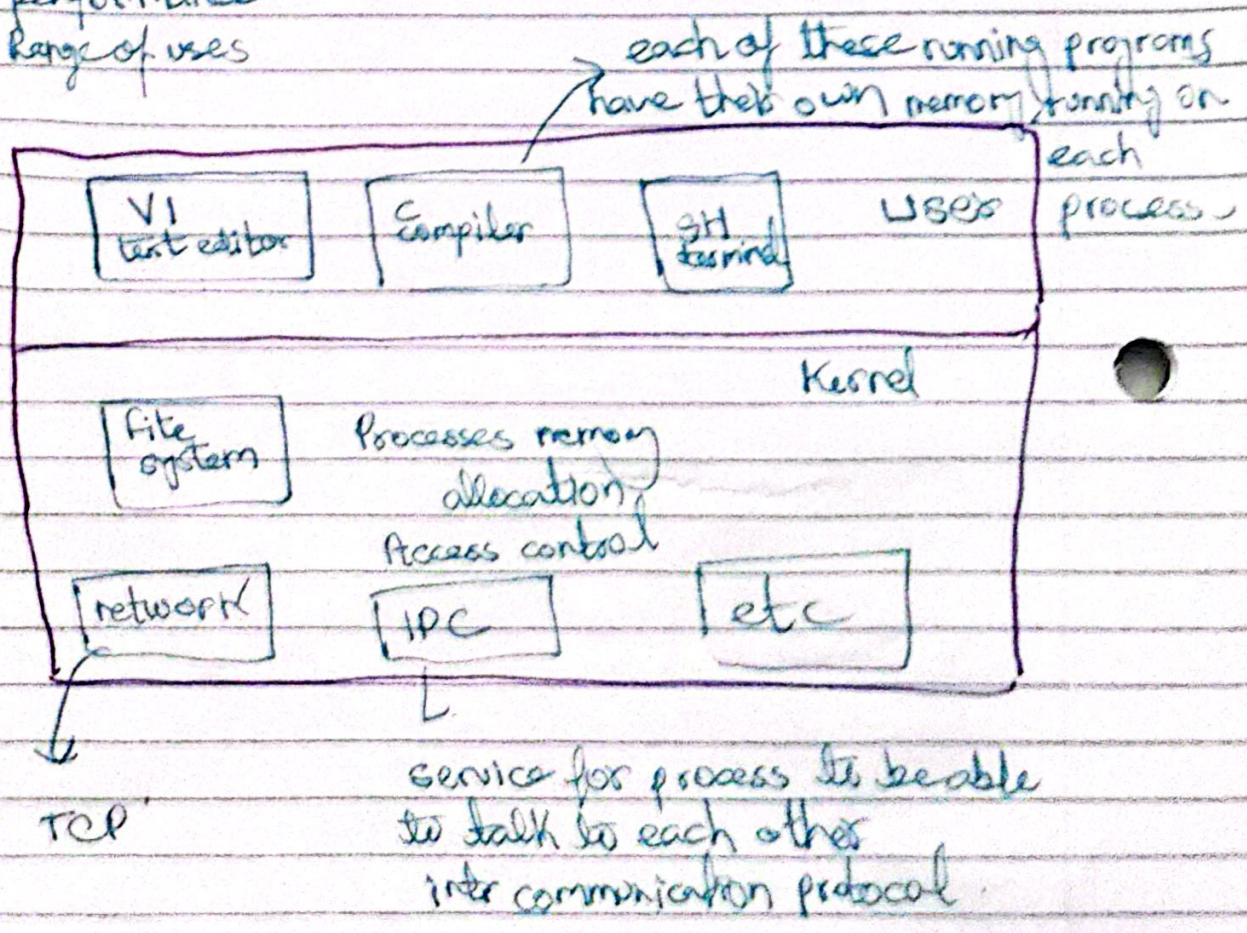 Range of uses
each of these running programs
have their own memory, running on
each
process
VI
text editor
C
compiler
SH
terminal
User
Kernel
file
system
Processes memory
allocation,
Access control
network
IPC
etc
TCP
service for process to be able
to talk to each other
inter communication protocol